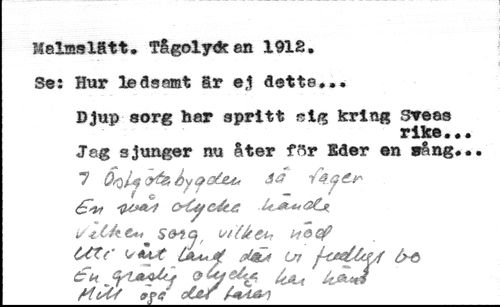 Malmslätt. Tågolyckan 1912.
Se: Hur ledsamt är ej detta...
Djup sorg har spritt sig kring Sveas
rike...
Jag sjunger nu åter för Eder en sång...
I Östgötabygden så fager
En svår olycka hände
Vilken sorg, vilken nöd
Uti vårt land där vi fredligt bo
En gräslig olycka har hänt
Mitt öga det tåras